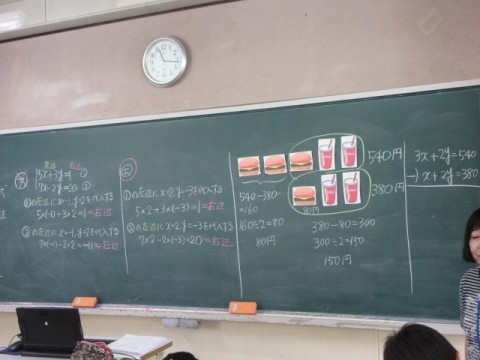 左辺 右辺
5x+2y=1 ①
7x-2y=20 ②
①の左辺にx=-1,y=2を代入する
5×(-1)+3×2=1=右辺
②の左辺にx=-1,y=2を代入する
7×(-1)-2×2=-11≠右辺
①の左辺にx=2,y=-3を代入する
5×2+3×(-3)=1=右辺
②の左辺にx=2,y=-3を代入する
7×2-2×(-3)=20=右辺
540円
380円
540-380
=160
160÷2=80
80円
80円
380-80=300
300÷2=150
150円
3x+2y=540
-) x+2y=380